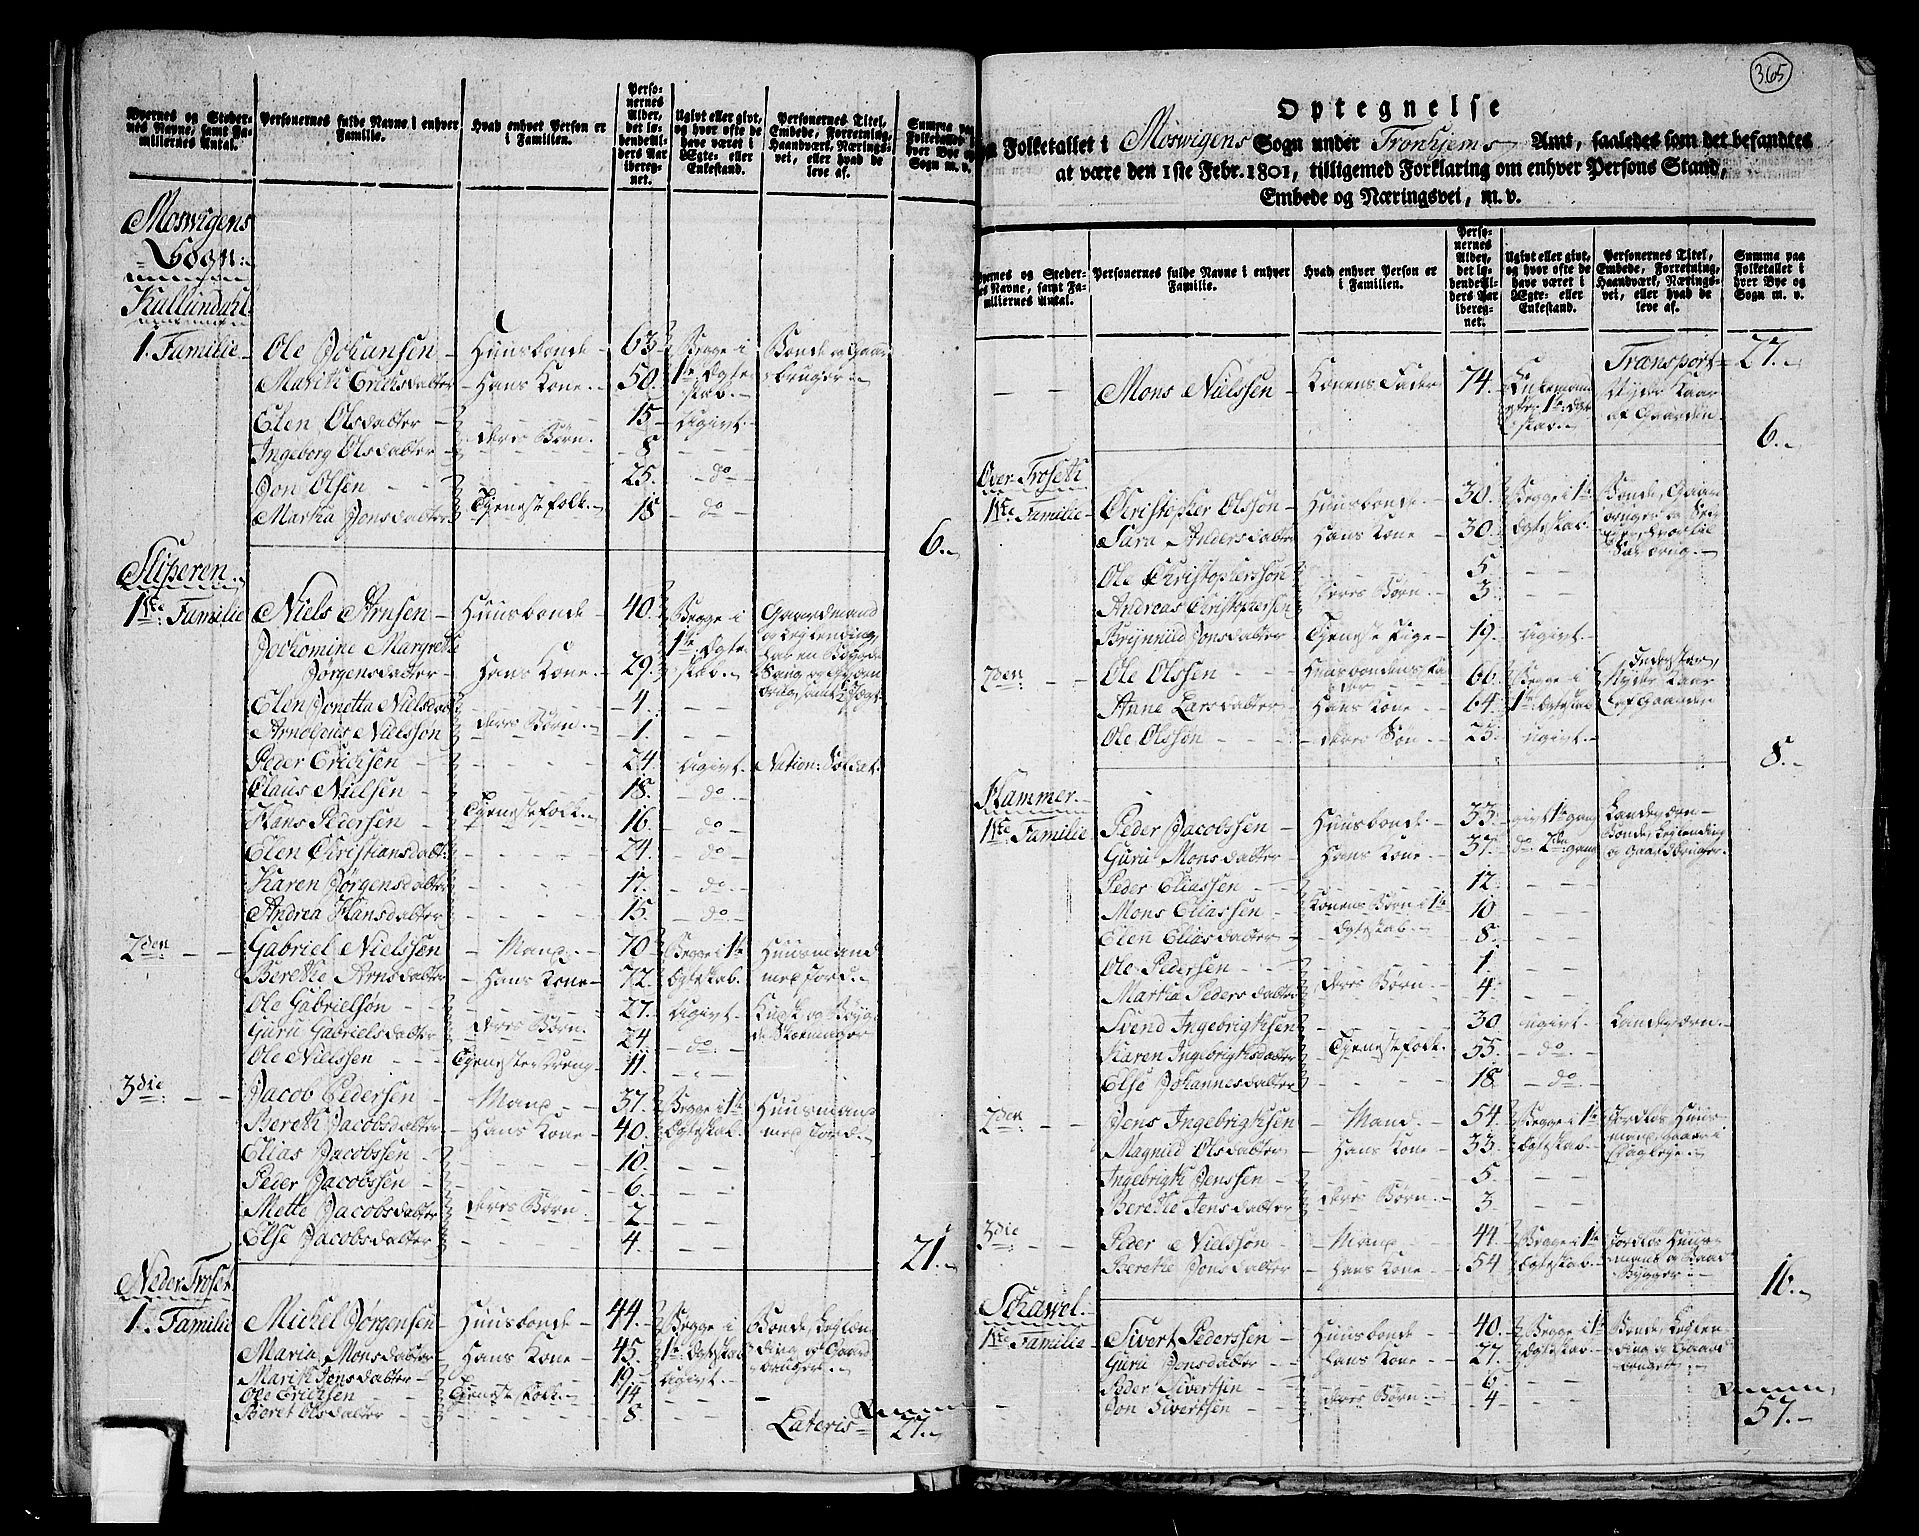 Byernes og Stedernes Navne, samt Familiernes Antal.
Personernes fulde Navne i enhver Familie.
Hvad enhver Person er i Familien.
Personernes Alder, det løbende Alders Aar iberegnet.
Ugivt eller givt, og hvor ofte de have været i Ægte- eller Enkestand.
Personernes Titel, Embede, Forretning, Haandværk, Næringsvei, eller hvad de leve af.
Summa paa Folketallet i hver Bye og Sogn m. v.
Moswigens
Sogn:
Kallundahl
1. Familie Ole Johansen Huusbonde 63 Begge i Bonde og Gaard
Marith Erichsdatter Hans Kone 50. 1te Ægte bruger
skab.
Elen Olsdatter 15 Ugivt.
Ingeborg Olsdatter deres Børn. 8
Jon Olsen 25. do
Martha Jonsdatter Tjenestefolk. 18 do
6.
Slipperen
1ste Familie Niels Arnsen Huusbonde 40. Begge i Gaardmand
Jochomine Margrethe 1te Ægte
Jørgensdatter Hans Kone 29. skab.
Elen Jonetta Nielsda 4.
Arnoldus Nielssøn deres Børn 1.
Peder Erichsen 24. Ugivt. Nation: Soldat.
Claus Nielsen 18. do
Hans Pedersen Tjenestefolk. 16. do
Elen Christiansdatt: 24. do
Karen Jørgensdatter 17. do
Andrea Hansdatter 15. do
2den Gabriel Nielssen Mand 70 Begge i 1te Huusmand
Berethe Arnsdatter Hans Kone 72. Ægteskab. med Jord.
Ole Gabrielsøn 27. Ugivt
Guru Gabrielsdatter deres Børn 24 do
Ole Nielssen Tjenestedreng 11.
3die Jacob Pedersen Mand 37. Begge i 1te Huusmand
Bereth Jacobsdatter Hans Kone 40. Ægteskab. med Jord.
Elias Jacobssen 10.
Peder Jacobssen 6.
Mette Jacobsdatter deres Børn. 2
Else Jacobsdatter 4.
21.
Neder Troset
1. Familie Michel Jørgensen Huusbonde 44. Begge i Bonde, Leylæn-
Maria Monsdatter Hans Kone 45. 1te Ægteskab ding og Gaard
Marith Jonsdatter 19. Ugivt. bruger
Ole Erichsen Tjenestefolk. 14
Beret Olsdatter 8
Lateris 27.
365
Optegnelse
Folketallet i Moswigens Sogn under Tronhjems Amt, saaledes som det befandtes
at være den 1ste Febr. 1801, tilligemed Forklaring om enhver Persons Stand,
Embede og Næringsvei, m. v.
Byernes og Stedernes Navne, samt Familiernes Antal.
Personernes fulde Navne i enhver Familie.
Hvad enhver Person er i Familien.
Personernes Alder, det løbende Alders Aar iberegnet.
Ugivt eller givt, og hvor ofte de have været i Ægte- eller Enkestand.
Personernes Titel, Embede, Forretning, Haandværk, Næringsvei, eller hvad de leve af.
Summa paa Folketallet i hver Bye og Sogn m. v.
Transport 27.
Mons Nielssen Konens Fader 74. Enkemand Nyder Kaar
efter 1te Ægte af Gaarden
skab.
6.
Over Troseth
1ste Familie Christopher Olssøn Huusbonde 30. Begge i 1te Bonde, Gaard
Sara Andersdatter Hans Kone 30. Ægteskab
Ole Christopherssøn 5
Andreas Christophersen deres Børn 3.
Brynnild Jonsdatter Tjeneste Pige 19. Ugivt.
2den Ole Olssen Huusbondens Fa 66 Begge i Inderster,
Anne Larsdatter Hans Kone 64 1te Ægteskab Nyder Kaar
af Gaarden
Ole Olssøn deres Søn 23. ugivt.
8.
Hammer
1ste Familie Peder Jacobssen Huusbonde 33. givt 1te gang Landeværn
Guru Monsdatter Hans Kone 37. do 2den gang Bonde, Leylending
og Gaardbruger
Peder Eliassen 12.
Mons Eliassen Konens Børn i 1te 10
Elen Eliasdatter Ægteskab. 8.
Ole Pedersen 1
Martha Pedersdatter deres Børn. 4.
Svend Ingebrigtsen 30 ugivt. Landeværn.
Karen Ingebrigtsdatter Tjenestefolk. 55. do
Else Johannesdatter 18 do
2den Jens Ingebrigtsen Mand. 54. Begge i 1te
Magnild Olsdatter Hans Kone 33. Ægteskab.
Ingebrigt Jenssen 5.
Berethe Jensdatter deres Børn. 3
3die Peder Nielssøn Mand 44. Begge i 1te Jordløs Huus-
Berethe Jonsdatter Hans Kone 54 Ægteskab. mand og Baad
Bygger
16.
Schavel.
1ste Familie Sivert Pederssen Huusbonde 40. Begge i 1te Bonde, Leylen-
Guru Jonsdatter Hans Kone 27. Ægteskab. ding og Gaard
bruger
Peder Sivertsen 6
Jon Sivertsen deres Børn 4
57.